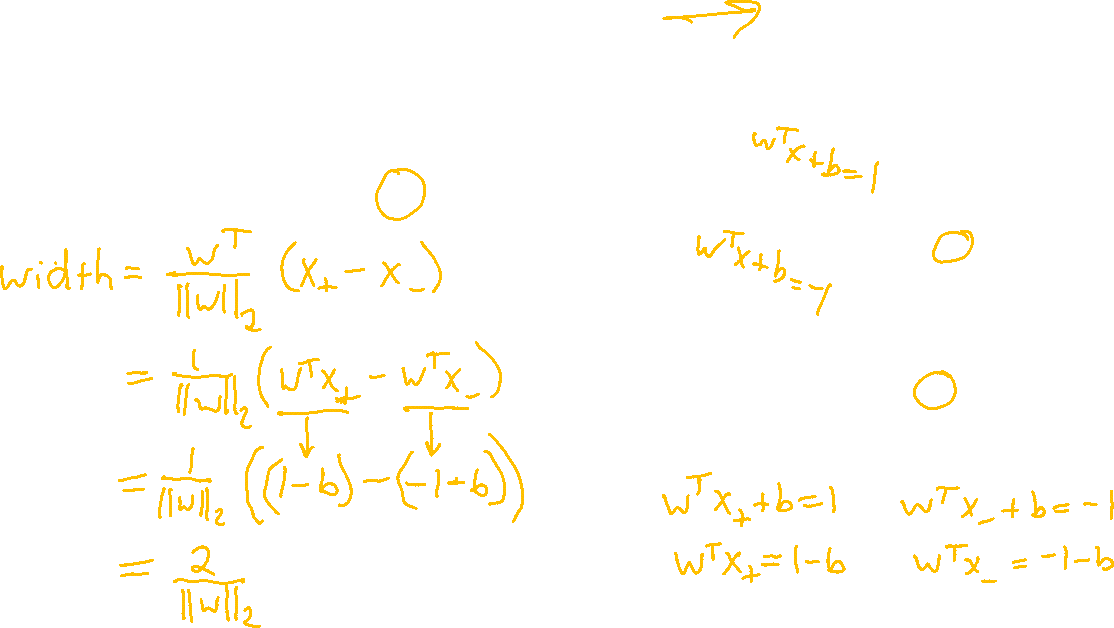 wᵀx+b=1
wᵀx+b=-1
width = wᵀ/||w||₂ (x₊ - x₋)
= 1/||w||₂ (wᵀx₊ - wᵀx₋)
= 1/||w||₂ ((1-b)-(-1+b))
= 2/||w||₂
wᵀx₊+b=1 wᵀx₋+b=-1
wᵀx₊=1-b wᵀx₋=-1-b